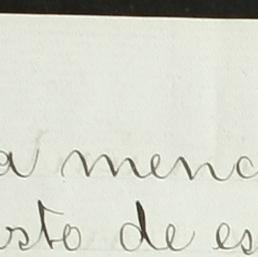 a menc
sto de es